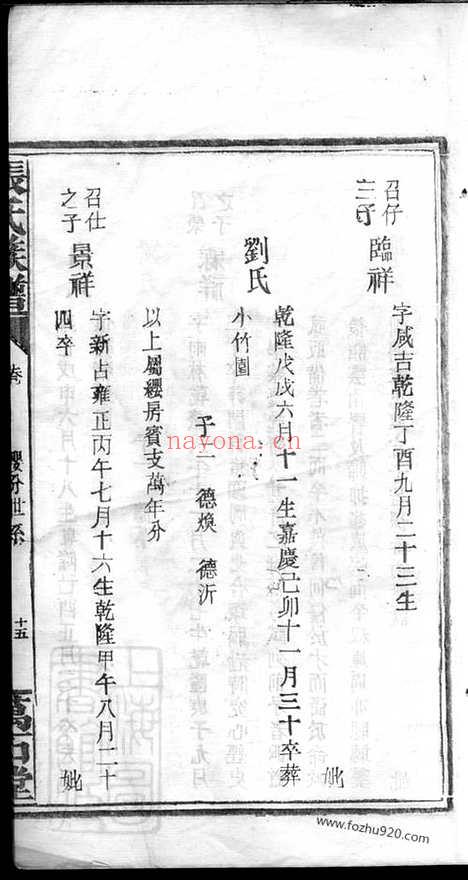 召仔
之子 臨祥 字咸吉乾隆丁酉九月二十三生 妣
劉氏 乾隆戊戌六月十一生嘉慶己卯十一月三十卒葬
小竹園 子二 德煥 德沂
以上屬纓房賓支萬年分
召仕
之子 景祥 字新占雍正丙午七月十六生乾隆甲午八月二十 妣
四卒
張氏族譜 卷 纓分世系 十五 堂
nayona.cn
www.fozhu920.com